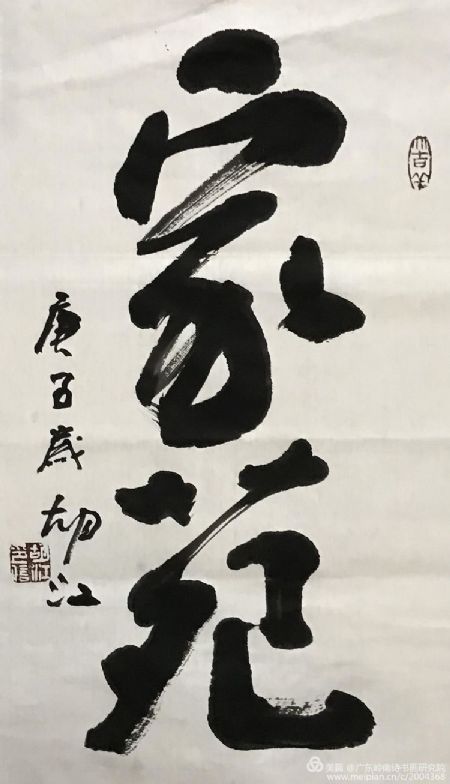 家苑
庚子歳 胡江
美篇 @广东岭南诗书画研究院
www.meipian.cn/c/2004368